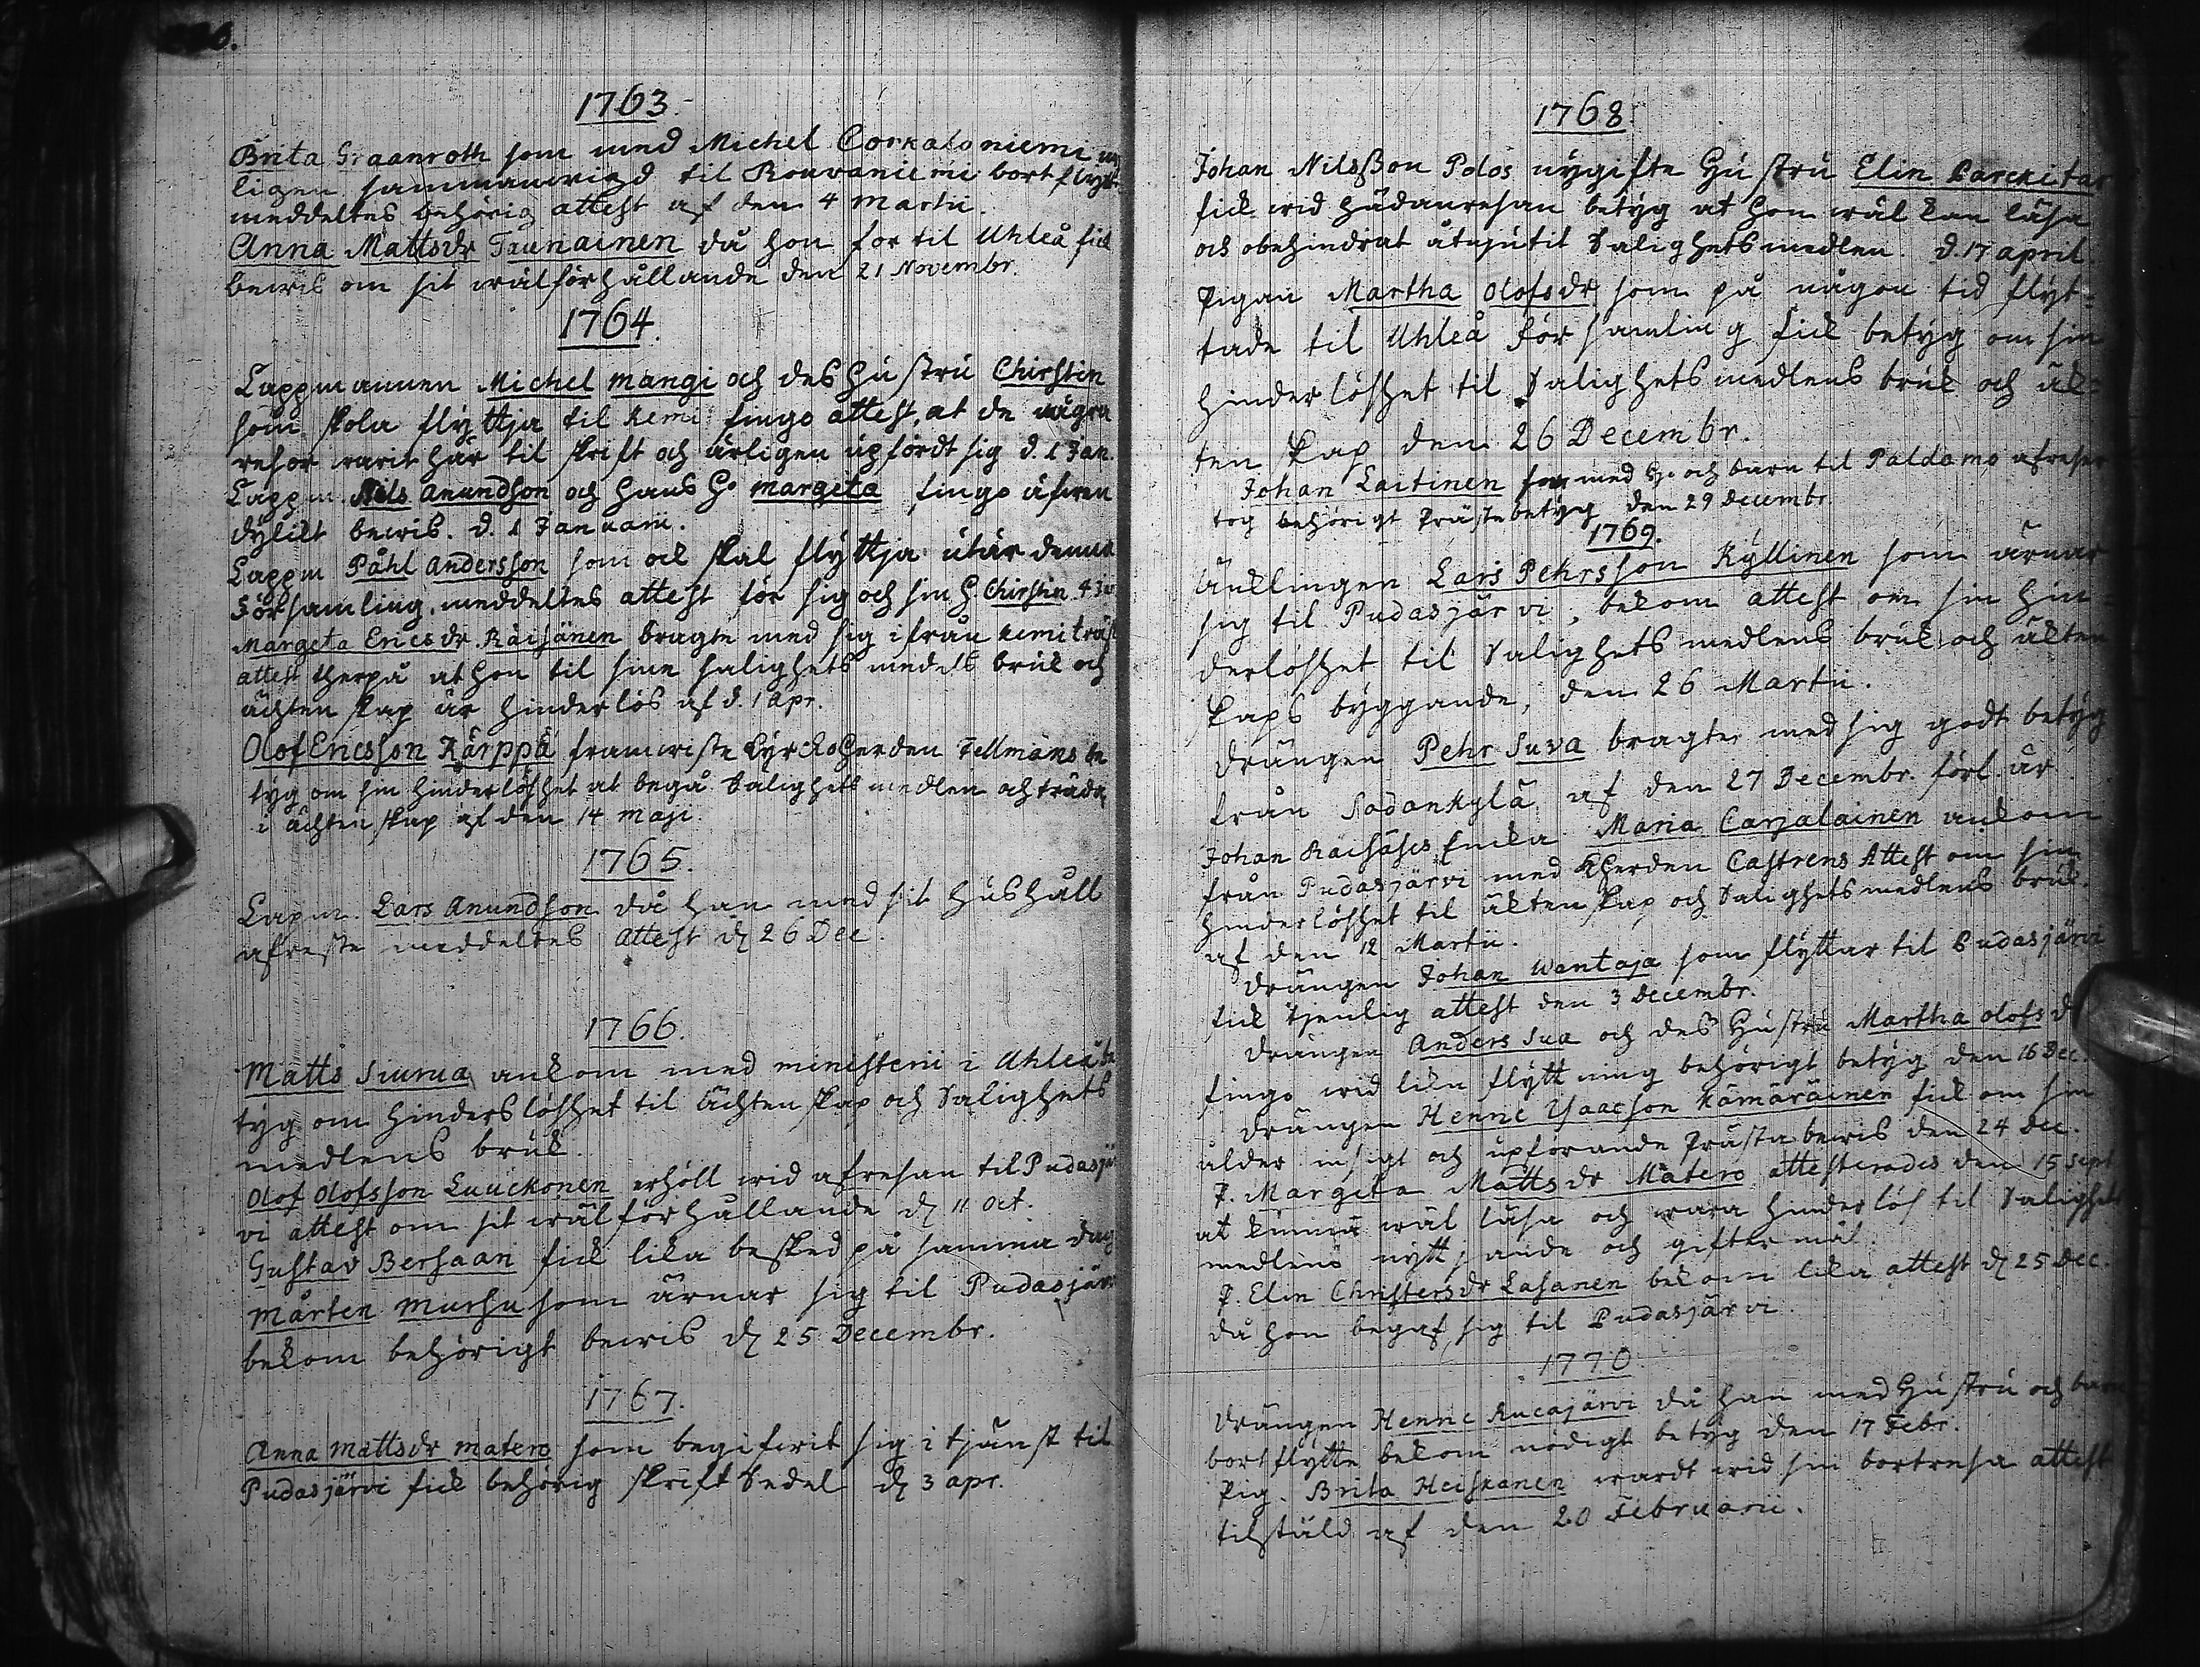 1763.
Brita Graanroth som med Michel Corkaloniemi
ligen sammanwigd til Rouvaniemi bortflytt
meddeltes behörig attest af den 4 Martii.
Anna Mattsdr Taunainen då hon for til Uhleå fick
bewis om sit wälförhållande den 21 Novembr.
1764.
Lappmannen Michel Mangi och des hustru Chirstin
som skola flyttja til Kemi fingo attest, at de några
resor warit här til skrift och ärligen upfördt sig d. 1 Jan.
Lappm. Nils Anundson och hans H. Margeta fingo äfwen
dylikt bewis. d. 1 Januarii.
Lappm Påhl Andersson som ock skal flyttja utur denna
Församling, meddeltes attest för sig och sin H. Chirstin
Margeta Ericsdr Räisänen bragte med sig ifrån Kemiträsk
attest therpå at hon til sine salighets medels bruk och
ächtenskap är hinderlös af d. 1 apr.
Olof Ericsson Kärppä framwiste Kyrckoherden Fellmans be
tyg om sin hinderlöshet at begå Salighets medlen och träda
i ächtenskap af den 14 Maji.
1765.
Lapm. Lars Anundson då han med sit hushåll
afreste meddeltes attest d 26 Dec.
1766.
Matts Siurua ankom med ministerii i Uhleå be
tyg om hinderslöshet til Ächtenskap och Salighets
medlens bruk.
Olof Olofsson Luuckonen erhöll wid afresan til Pudasjä
vi attest om sit wälförhållande d 11 Oct.
Gustav Bersaan fick lika besked på samma dag
Mårten Mursu som ärnar sig til Pudasjärvi
bekom behörigt bewis d 25 Decembr.
1767.
Anna Mattsdr Matero som begifwit sig i tjänst til
Pudasjärvi fick behörig skriftsedel d 3 apr.
1768.
Johan Nilsson Polos nygifte Hustru Elin Karckitar
fick wid hädanresan betyg at hon wäl kan läsa
och obehindrat åtnjutit Salighetsmedlen. d. 17 april.
Pigan Martha Olofsdr som på någon tid flyt=
tade til Uhleå Församling fick betyg om sin
hinderlöshet til Salighetsmedlens bruk och äk=
tenskap den 26 Decembr.
Johan Laitinen som med H. och barn til Paldamo afreser
tog behörigt Prästebetyg den 29 Decembr.
1769.
Änklingen Lars Pehrsson Kyllinen som ärnar
sig til Pudasjärvi, bekom attest om sin hin
derlöshet til Salighets medlens bruk och äkten
skaps byggande, den 26 Martii.
Drängen Pehr Suva bragte med sig godt betyg
från Sodankylä af den 27 Decembr. förl. år
Johan Räisäses Encka Maria Carjalainen ankom
från Pudasjärvi med KHerden Castrens Attest om sin
hinderlöshet til äktenskap och Salighetsmedlens bruk.
af den 12 Martii.
Drängen Johan Wantaja som flyttar til Pudasjärvi
fick tjenlig attest den 3 Decembr.
Drängen Anders Sua och des Hustru Martha Olofsdr
fingo wid lika flyttning behörigt betyg den 16 Dec.
Drängen Henne Ysaacson Kämäräinen fick om sin
ålder insigt och upförande Prästabewis den 24 Dec.
P. Margeta Mattsdr Matero attesterades den 15 Sept
at kunna wäl läsa och wara hinderlös til Salighets
medlens nyttjande och giftermål.
P. Elin Christersdr Lasanen bekom lika attest d 25 Dec.
då hon begaf sig til Pudasjärvi.
1770
Drängen Henne Rucajärvi då han med Hustru och barn
bortflytte bekom nödigt betyg den 17 Febr.
Pig. Brita Heiskanen wardt wid sin bortresa attest
tilstäld af den 20 Februarii.